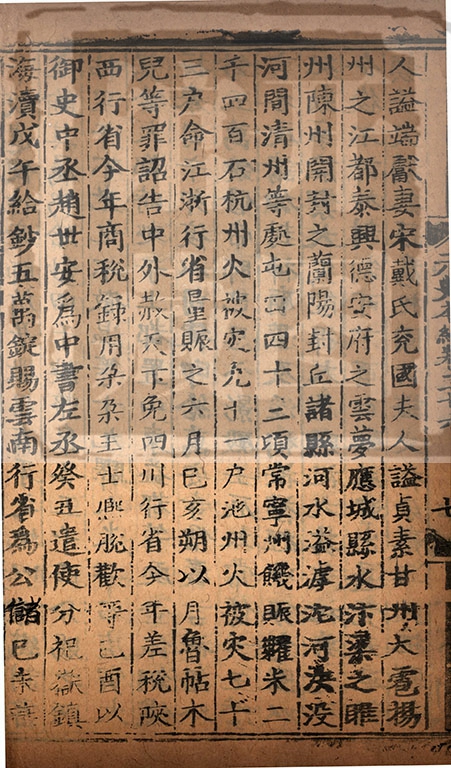 元史本紀卷三十六 七
人謚端獻妻宋戴氏兗國夫人謚貞素甘州大雹揚
州之江都泰興德安府之雲夢應城縣水汴梁之睢
州陳州開封之蘭陽封丘諸縣河水溢滹沱河決没
河間清州等處屯田四十三頃常寧州饑賑糶米二
千四百石杭州火被災九十一户池州火被災七十
三户命江浙行省量賑之六月己亥朔以月魯帖木
兒等罪詔告中外赦天下免四川行省今年差稅陝
西行省今年商稅録用朶朶王士熙脱歡等己酉以
御史中丞趙世安爲中書左丞癸丑遣使分祀嶽鎮
海瀆戊午給鈔五萬錠賜雲南行省爲公儲己